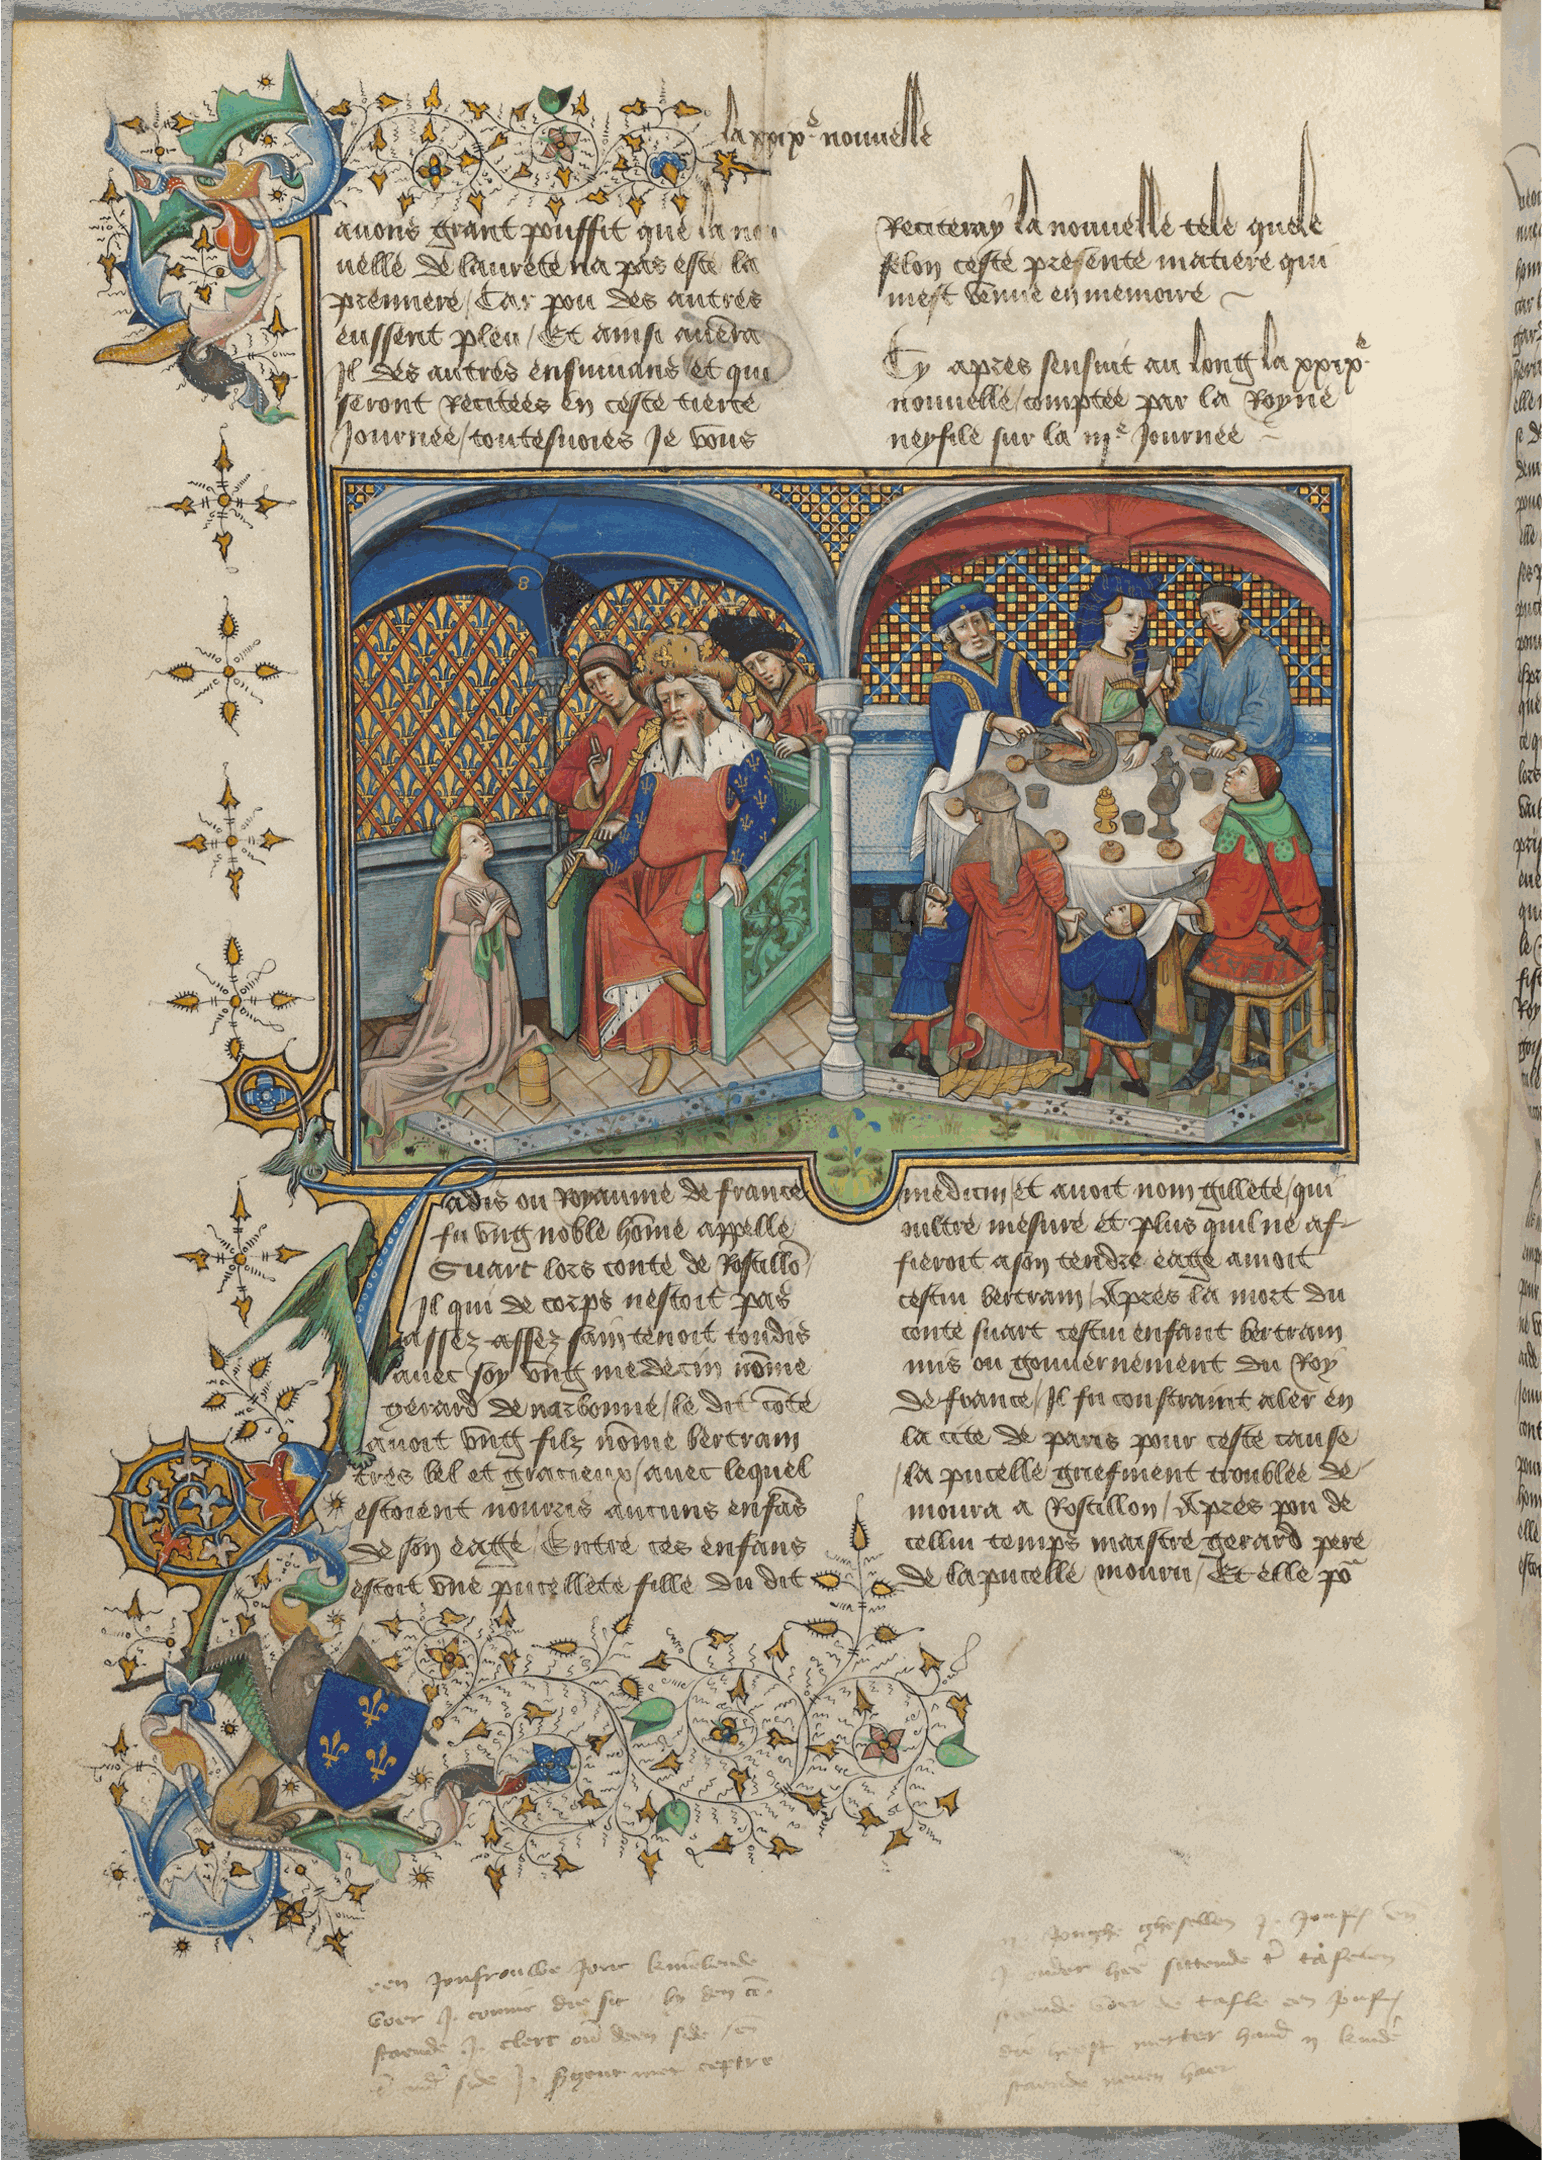 la xxix.e nouuelle
auons grant pouffit que la nou
uelle de laurete na pas este la
premiere / Car pou des autres
eussent pleu / Et ainsi auera
Il des autres ensuiuans et qui
seront Recitees en ceste tierce
Journee / toutesuoies Je vous
Reciteray la nouuelle tele quele
selon ceste presente matiere qui
mest venue en memoire
Cy apres sensuit au long la xxix.e
nouuelle / comptee par la Royne
neyfile sur la iij.e Journee
8
Jadis ou Royaume de france
fu vng noble hōme appelle
Suart lors conte de Rossillō /
Il qui de corps nestoit pas
assez assez sain tenoit toudis
auec soy vng medecin nōme
gerard de narbonne / le dit cōte
auoit vng filz nōme bertram
tres bel et gracieux / auec lequel
estoient nourris aucuns enfās
de son eage / Entre ces enfans
estoit vne pucellete fille du dit
medicin / et auoit nom gillete / qui
oultre mesure et plus quil ne af-
fieroit a son tendre eage amoit
cestui bertram / Apres la mort du
conte suart cestui enfant bertram
mis ou gouuernement du Roy
de france / Il fu constraint aler en
la cite de paris pour ceste cause
/ la pucelle griefment troublee de-
moura a Rossillon / Apres pou de
cellui temps maistre gerard pere
de la pucelle mouru / Et elle po
een Jonfrouwe Jonc knielende
voer J. coninc die sit by den
staende J. clerc deen side / en
side J. met ceptre
Jonghe ghesellen J. en
sittende tafelen
voer de tafle een
die heeft hand kinde
staende neuen haer